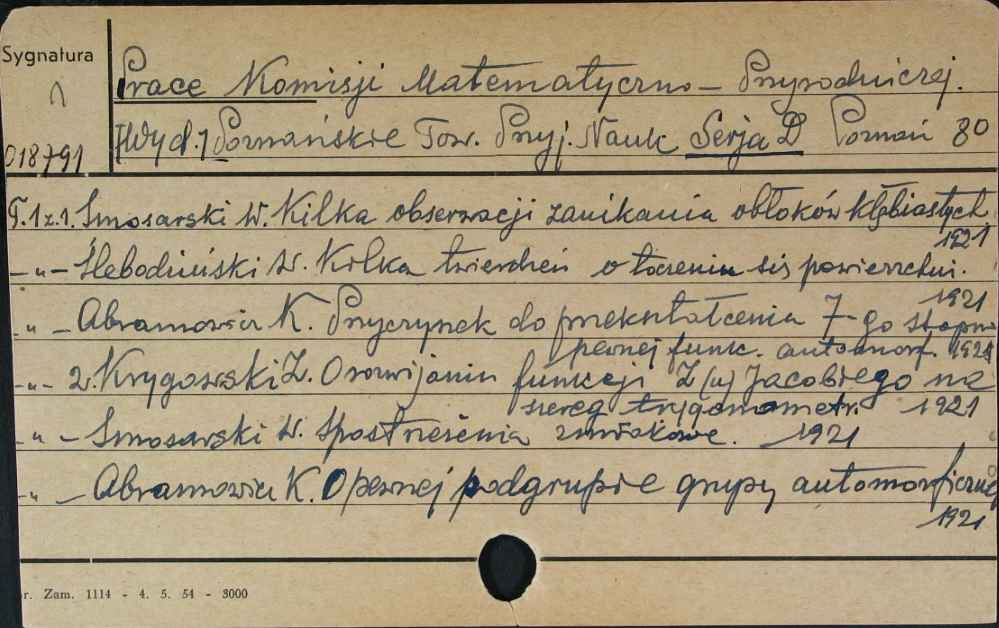 Sygnatura
Prace Komisji Matematyczno - Przyrodniczej.
[Wyd.] Poznańskie Tow. Przyj. Nauk Serja D Poznań 80
018791
T.1z.1. Smosarski W. Kilka obserwacji zanikania obłoków kłębiastych
1921
-„- Ślebodziński W. Kilka twierdzeń o toczeniu się powierzchni.
1921
-„- Abramowicz K. Przyczynek do przekształcenia 7-go stopnia
pewnej funk. automorf. 1921
-„- z. Krygowski Z. O rozwijaniu funkcji Z(u) Jacobiego na
szereg trygonometr. 1921
-„- Smosarski W. Spostrzeżenia zmrokowe. 1921
-„- Abramowicz K. O pewnej podgrupie grupy automorficznej
1921
r. Zam. 1114 - 4. 5. 54 - 3000